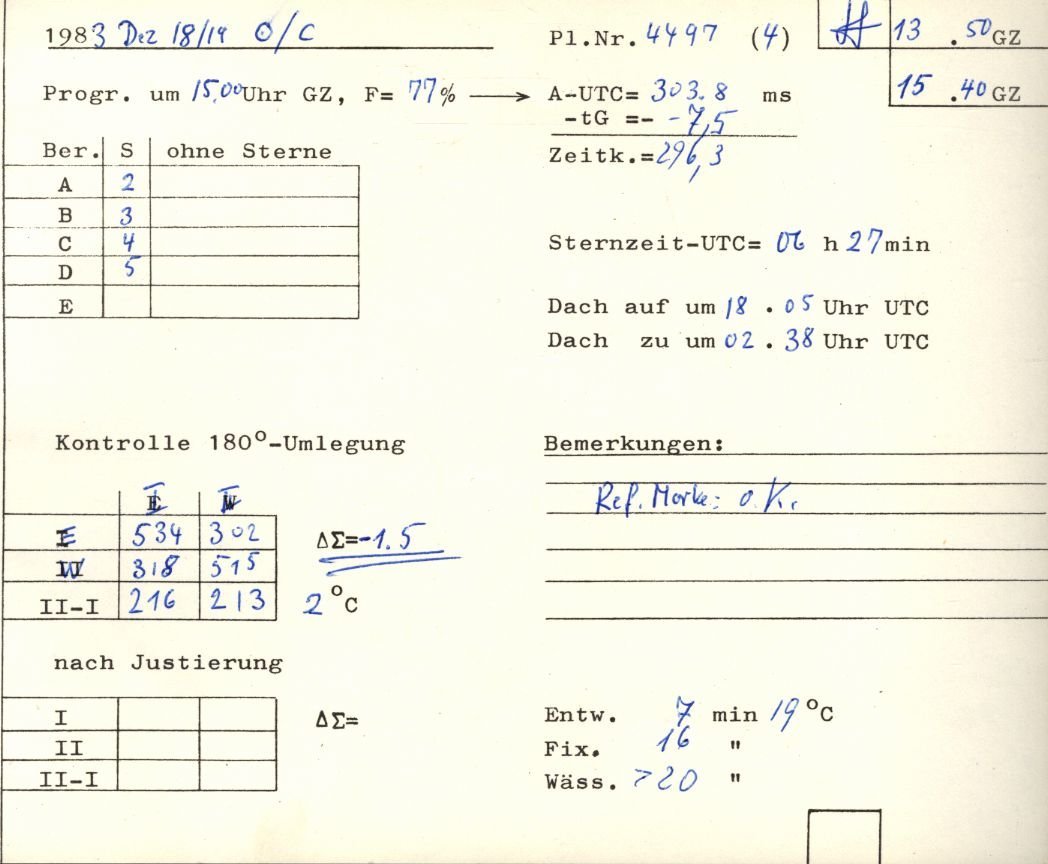 1983 Dez 18/19 O/C
Pl.Nr. 4497 (4)
13 .50 GZ
Progr. um 15.00 Uhr GZ, F= 77% → A-UTC= 303.8 ms
15 .40 GZ
-tG =- -7,5
Zeitk.=296,3
Ber. S ohne Sterne
A 2
B 3
C 4
D 5
E
Sternzeit-UTC= 06 h 27min
Dach auf um 18 . 05 Uhr UTC
Dach zu um 02 . 38 Uhr UTC
Kontrolle 180°-Umlegung
I II
E 534 302 ΔΣ=-1.5
W 318 515
II-I 216 213 2 °C
Bemerkungen:
Ref. Marke: o.K.
nach Justierung
I ΔΣ=
II
II-I
Entw. 7 min 19 °C
Fix. 16 "
Wäss. >20 "